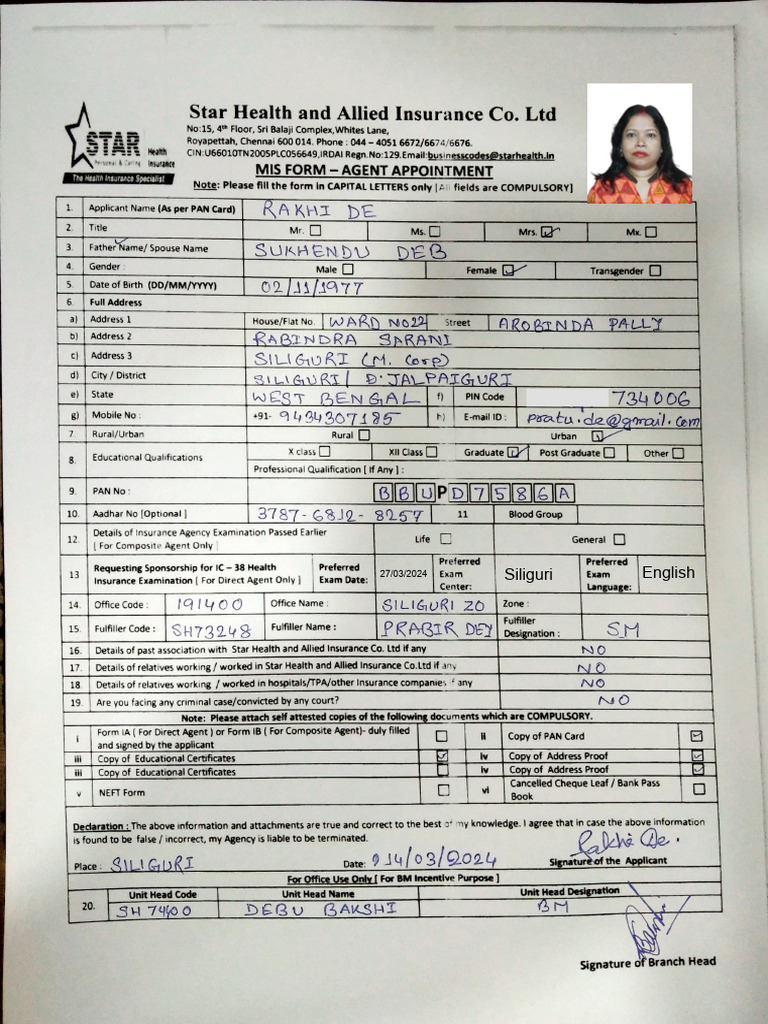 Star Health and Allied Insurance Co. Ltd
No:15, 4th Floor, Sri Balaji Complex,Whites Lane,
Royapettah, Chennai 600 014. Phone : 044 – 4051 6672/6674/6676.
CIN:U66010TN2005PLC056649,IRDAI Regn.No:129.Email:businesscodes@starhealth.in
STAR Health Insurance
Personal & Caring
The Health Insurance Specialist
MIS FORM – AGENT APPOINTMENT
Note: Please fill the form in CAPITAL LETTERS only [All fields are COMPULSORY]
1. Applicant Name (As per PAN Card) RAKHI DE
2. Title Mr. Ms. Mrs. Mx.
3. Father Name/ Spouse Name SUKHENDU DEB
4. Gender : Male Female Transgender
5. Date of Birth (DD/MM/YYYY) 02/11/1977
6. Full Address
a) Address 1 House/Flat No. WARD NO 22 Street AROBINDA PALLY
b) Address 2 RABINDRA SARANI
c) Address 3 SILIGURI (M. Corp)
d) City / District SILIGURI / D. JALPAIGURI
e) State WEST BENGAL f) PIN Code 734006
g) Mobile No : +91- 9434307185 h) E-mail ID : pratu.de@gmail.com
7. Rural/Urban Rural Urban
8. Educational Qualifications X class XII Class Graduate Post Graduate Other
Professional Qualification [ If Any ] :
9. PAN No : BBUPD7586A
10. Aadhar No [Optional ] 3787-6812-8257 11 Blood Group
12. Details of Insurance Agency Examination Passed Earlier Life General
[ For Composite Agent Only ]
13 Requesting Sponsorship for IC – 38 Health Insurance Examination [ For Direct Agent Only ] Preferred Exam Date: 27/03/2024 Preferred Exam Center: Siliguri Preferred Exam Language: English
14. Office Code : 191400 Office Name : SILIGURI ZO Zone :
15. Fulfiller Code : SH73248 Fulfiller Name : PRABIR DEY Fulfiller Designation : SM
16. Details of past association with Star Health and Allied Insurance Co. Ltd if any NO
17. Details of relatives working / worked in Star Health and Allied Insurance Co.Ltd if any NO
18 Details of relatives working / worked in hospitals/TPA/other Insurance companies if any NO
19. Are you facing any criminal case/convicted by any court? NO
Note: Please attach self attested copies of the following documents which are COMPULSORY.
i Form IA ( For Direct Agent ) or Form IB ( For Composite Agent)- duly filled and signed by the applicant ii Copy of PAN Card
iii Copy of Educational Certificates iv Copy of Address Proof
iii Copy of Educational Certificates iv Copy of Address Proof
v NEFT Form vi Cancelled Cheque Leaf / Bank Pass Book
Declaration : The above information and attachments are true and correct to the best of my knowledge. I agree that in case the above information
is found to be false / incorrect, my Agency is liable to be terminated.
Rakhi De.
Place : SILIGURI Date: 14/03/2024 Signature of the Applicant
For Office Use Only [ For BM Incentive Purpose ]
20. Unit Head Code Unit Head Name Unit Head Designation
SH 74400 DEBU BAKSHI BM
Signature of Branch Head